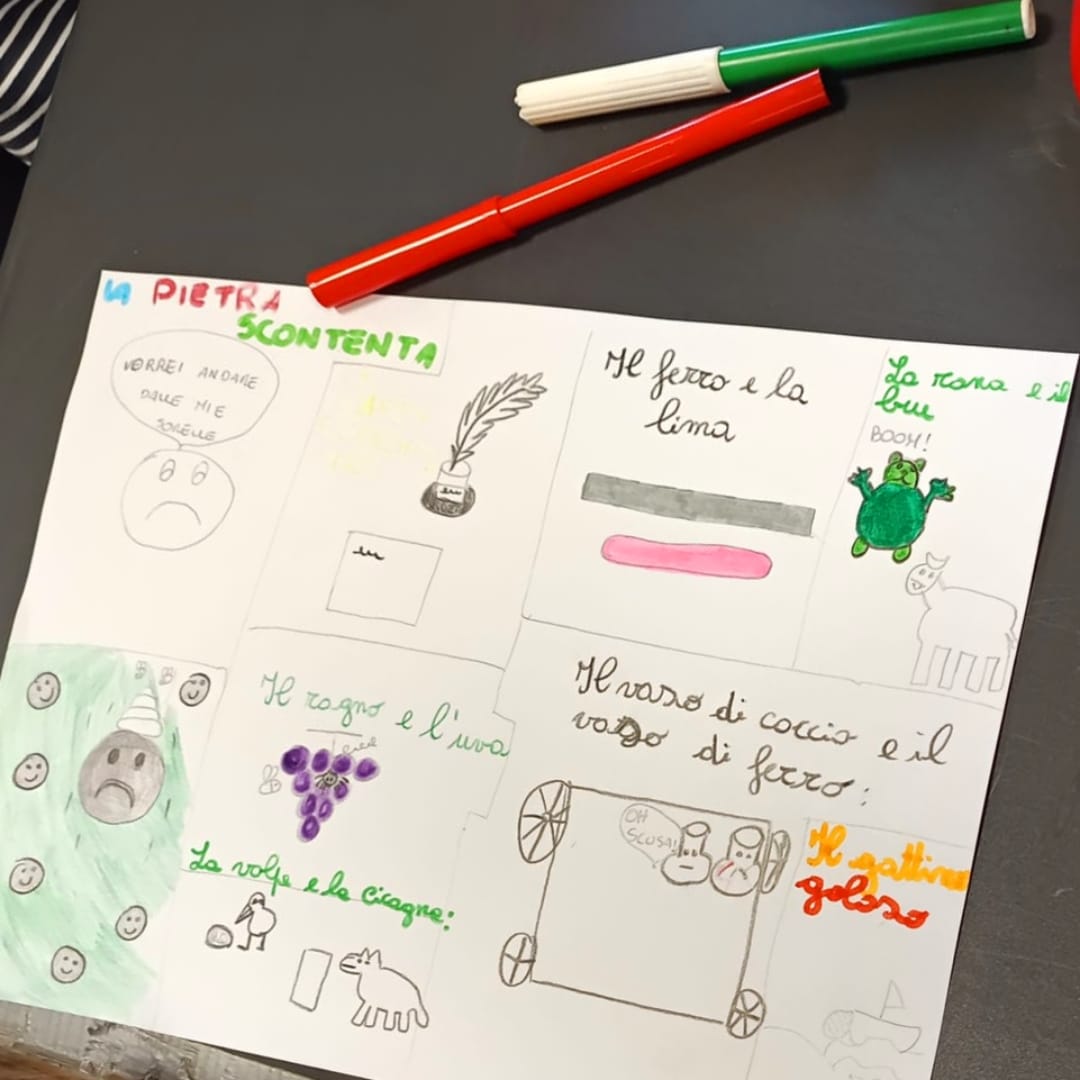 LA PIETRA
SCONTENTA
VORREI ANDARE
DALLE MIE
SORELLE
Il ferro e la
lima
La rana e il
bue
BOOM!
Il ragno e l'uva
Il vaso di coccio e il
vaso di ferro:
OH
SCUSA!
La volpe e la cicogna:
Il gattino
goloso